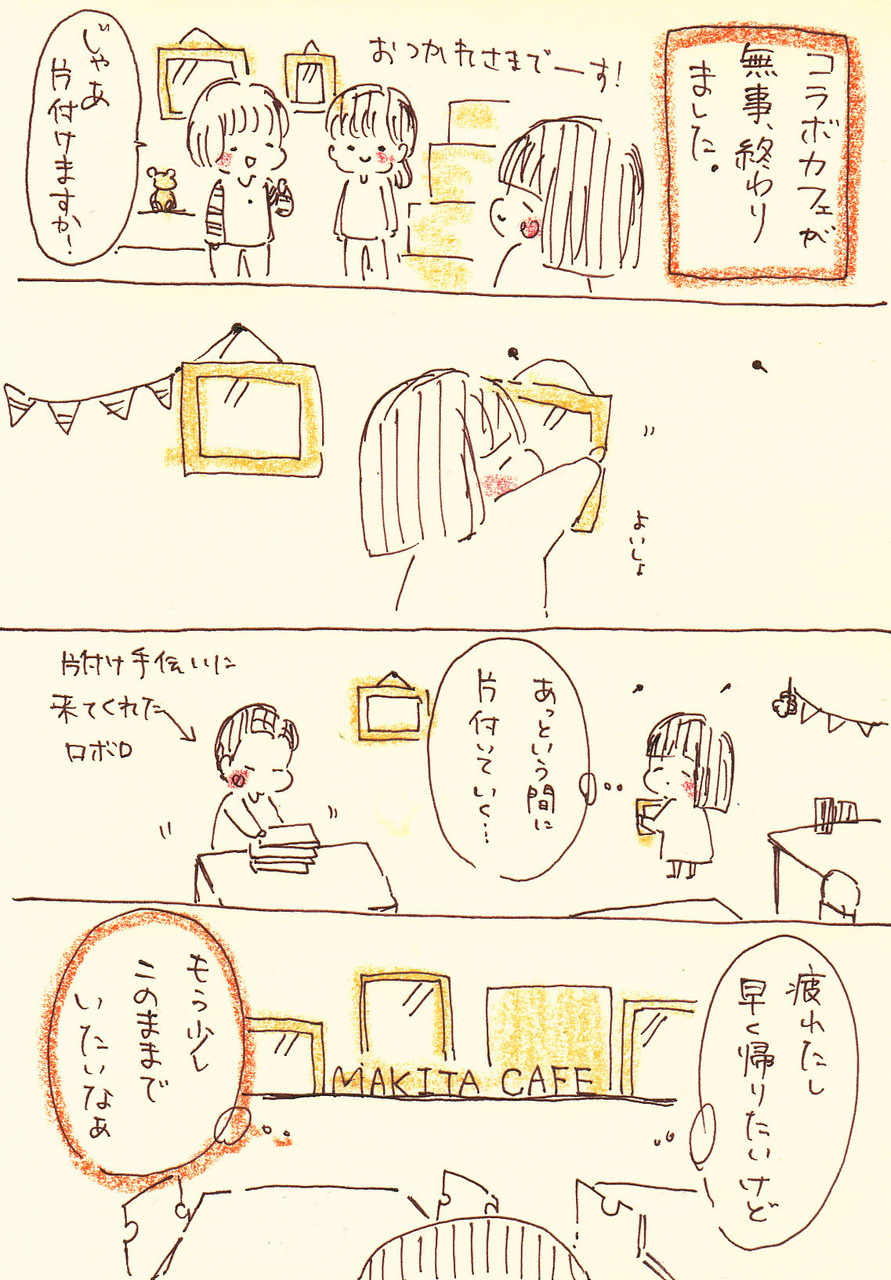 コラボカフェが
無事、終わり
ました。
おつかれさまでーす!
じゃあ
片付けますか!
よいしょ
あっという間に
片付いていく…
片付け手伝いに
来てくれた
ロボロ
疲れたし
早く帰りたいけど
MAKITA CAFE
もう少し
このままで
いたいなぁ